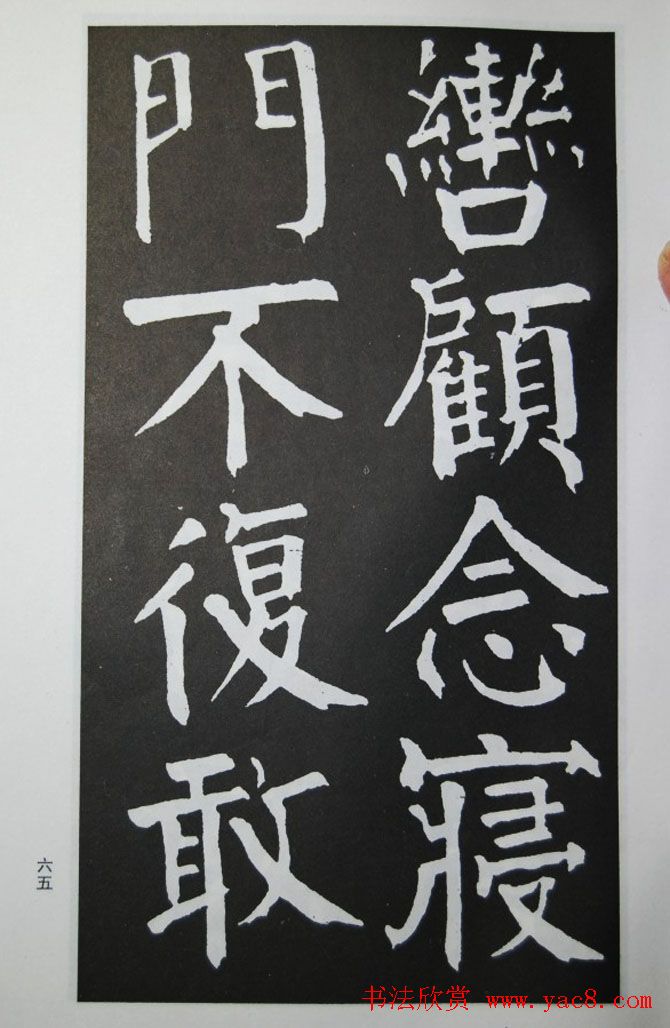 轡顧念寢
門不復敢
六五
书法欣赏 www.yac8.com